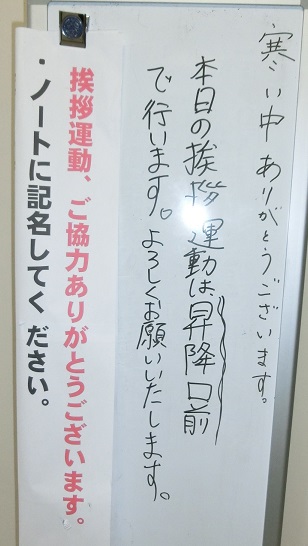 寒い中ありがとうございます。
本日の挨拶運動は昇降口前
で行います。よろしくお願いいたします。
挨拶運動、ご協力ありがとうございます。
・ノートに記名してください。